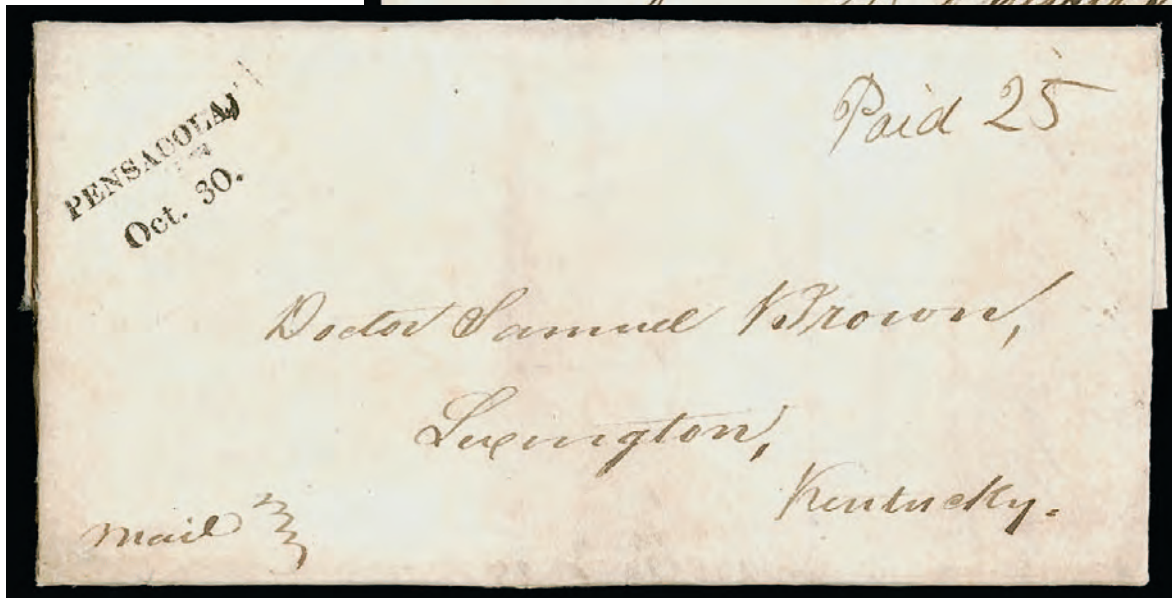 PENSACOLA,
Oct. 30.
Paid 25
Doctor Samuel Brown,
Lexington,
Kentucky.
Mail